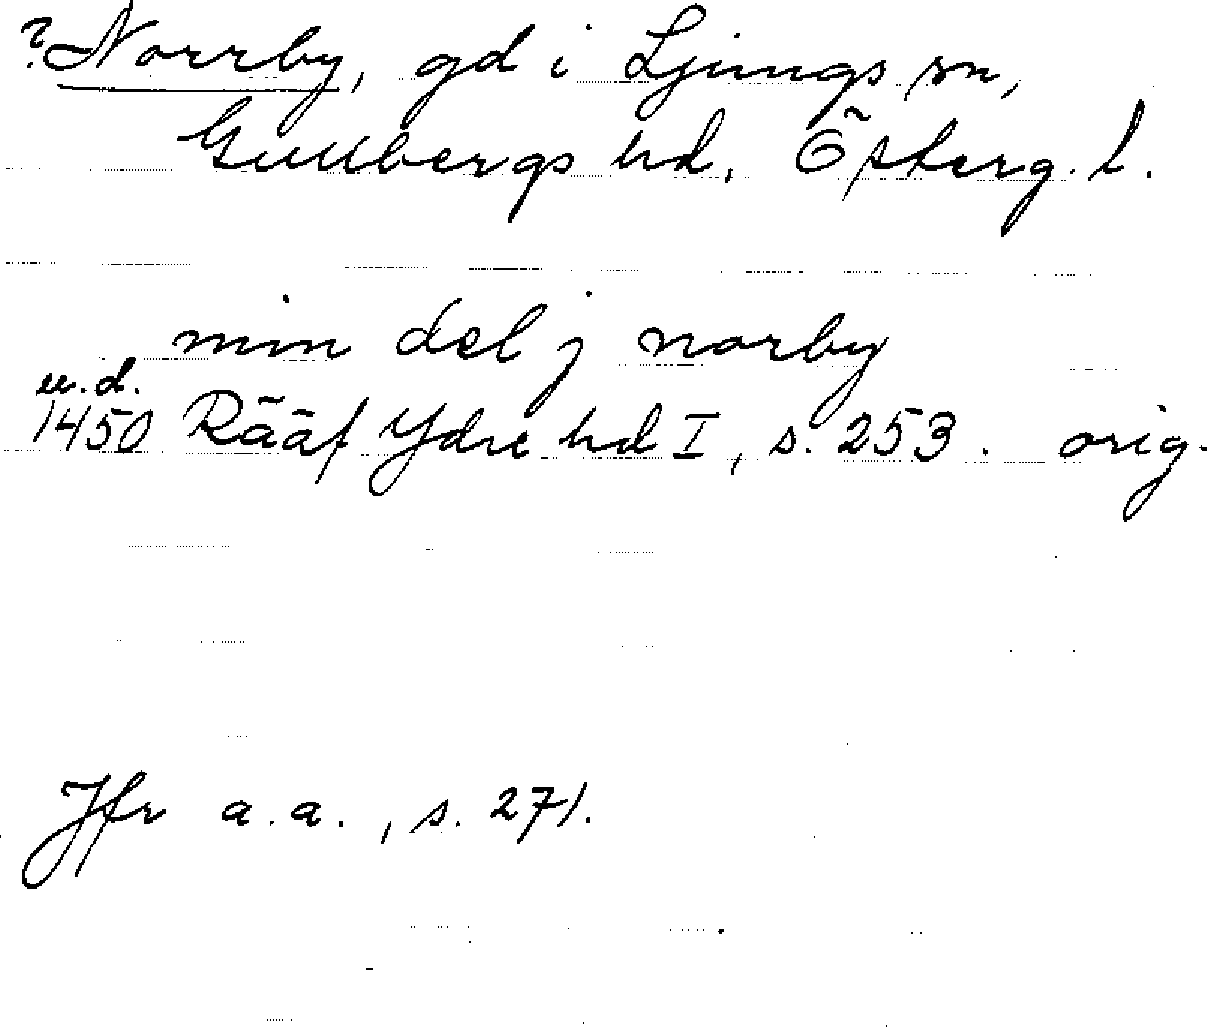 ? Norrby, gd i Ljungs sn,
Gullbergs hd, Österg. l.
min del j norby
u.d.
1450 Rääf Ydre hd I, s. 253. orig.
Jfr a.a., s. 271.